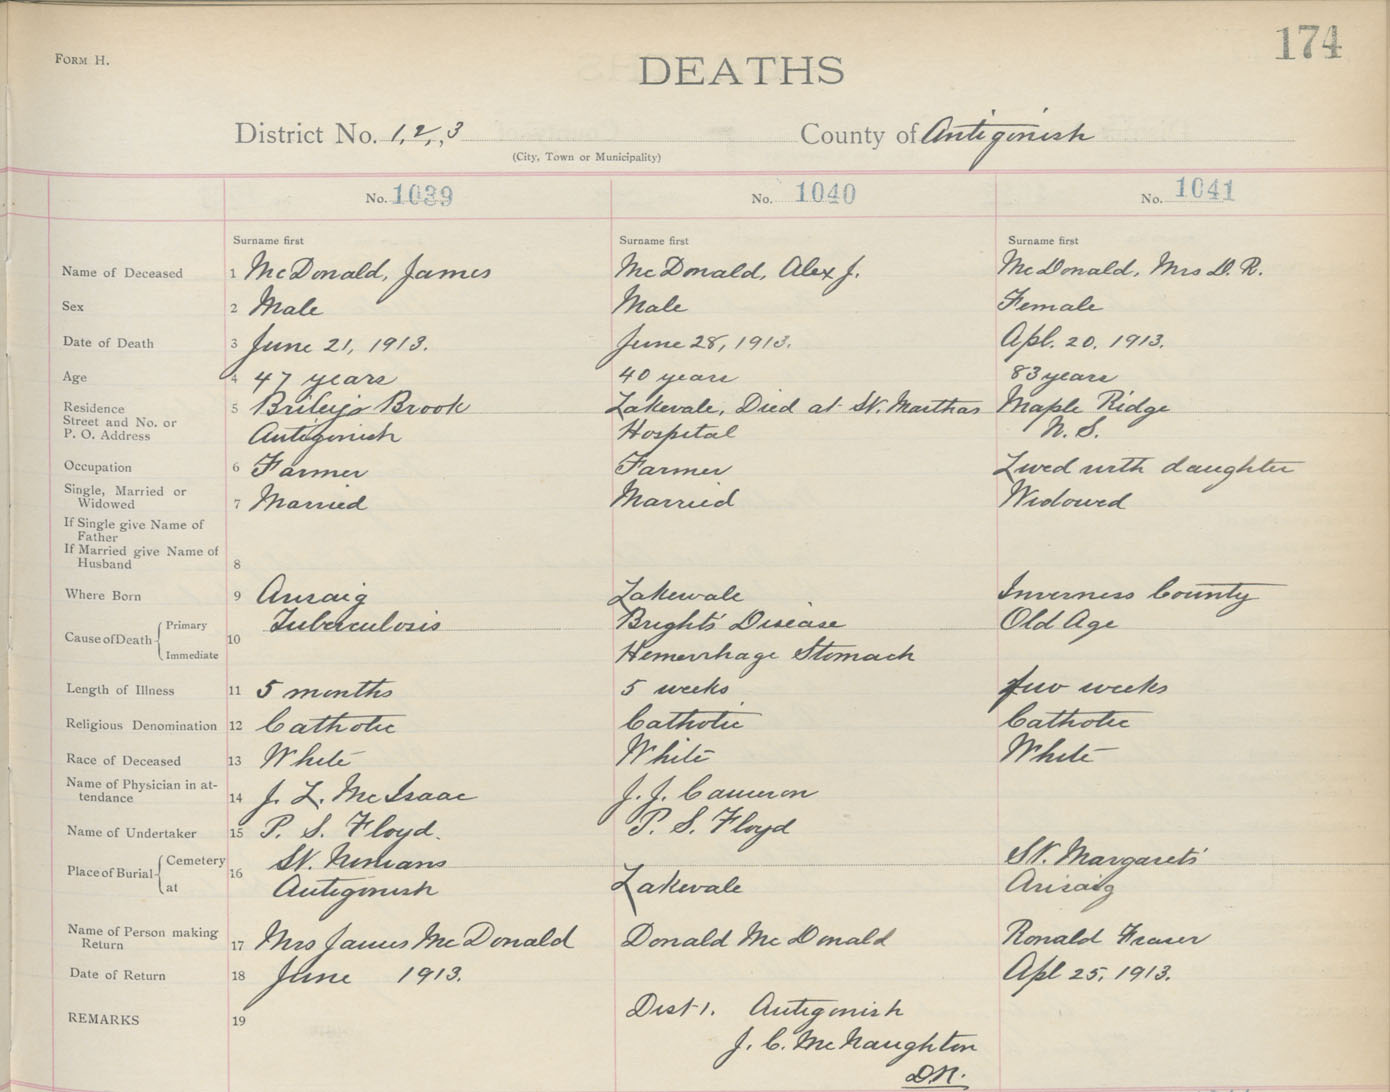 174
FORM H.
DEATHS
District No. 1, 2, 3 County of Antigonish
(City, Town or Municipality)
No. 1039 No. 1040 No. 1041
Surname first Surname first Surname first
Name of Deceased 1 McDonald, James McDonald, Alex J. McDonald, Mrs D. R.
Sex 2 Male Male Female
Date of Death 3 June 21, 1913. June 28, 1913. Apl. 20, 1913.
Age 4 47 years 40 years 83 years
Residence 5 Brileys Brook Lakevale, Died at St. Marthas Maple Ridge
Street and No. or
P. O. Address Antigonish Hospital N. S.
Occupation 6 Farmer Farmer Lived with daughter
Single, Married or
Widowed 7 Married Married Widowed
If Single give Name of
Father
If Married give Name of
Husband 8
Where Born 9 Arisaig Lakevale Inverness County
Cause of Death Primary 10 Tuberculosis Bright's Disease Old Age
Immediate Hemorrhage Stomach
Length of Illness 11 5 months 5 weeks few weeks
Religious Denomination 12 Catholic Catholic Catholic
Race of Deceased 13 White White White
Name of Physician in at-
tendance 14 J. L. McIsaac J. J. Cameron
Name of Undertaker 15 P. S. Floyd. P. S. Floyd
Place of Burial Cemetery 16 St. Ninians St. Margaret's
at Antigonish Lakevale Arisaig
Name of Person making
Return 17 Mrs James McDonald Donald McDonald Ronald Fraser
Date of Return 18 June 1913. Apl 25, 1913.
REMARKS 19 Dist 1. Antigonish
J. C. McNaughton
D.R.